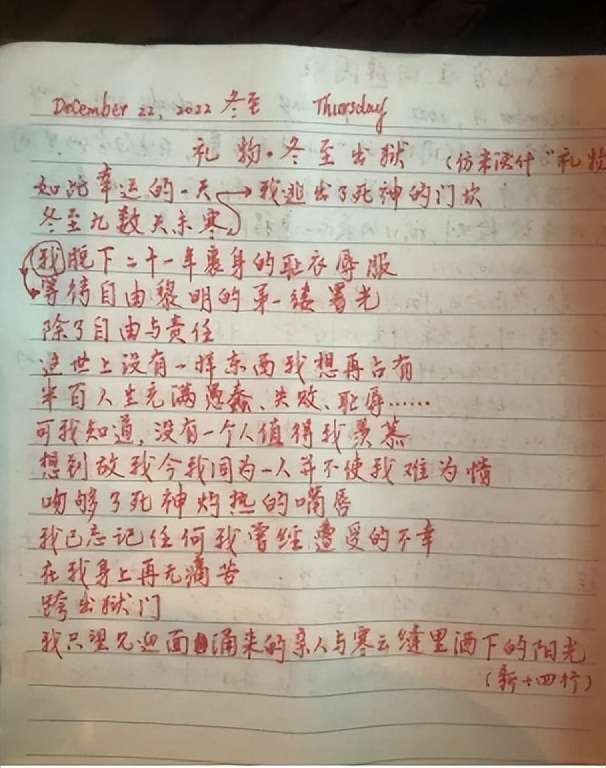 December 22, 2022 冬至 Thursday
礼物·冬至出狱 (仿米沃什“礼物
如此幸运的一天 我逃出了死神的门坎
冬至九数天未寒,
我脱下二十一年裹身的耻衣辱服
等待自由黎明的第一缕曙光
除了自由与责任
这世上没有一样东西我想再占有
半百人生充满愚蠢、失败、耻辱……
可我知道,没有一个人值得我羡慕
想到故我今我同为一人并不使我难为情
吻够了死神灼热的嘴唇
我已忘记任何我曾经遭受的不幸
在我身上再无痛苦
跨出狱门
我只望见迎面涌来的亲人与寒云缝里洒下的阳光
(新十四行)